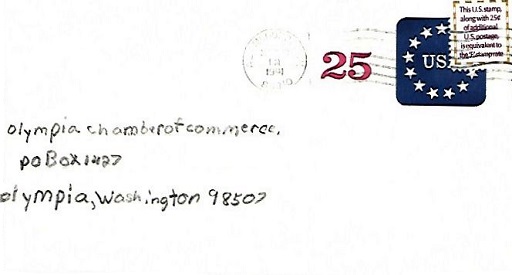 This U.S. stamp,
along with 25¢
of additional
U.S. postage,
is equivalent to
the 'F' stamp rate
25
USA
1991
olympia chamber of commerce,
po Box 1427
olympia, Washington 98507